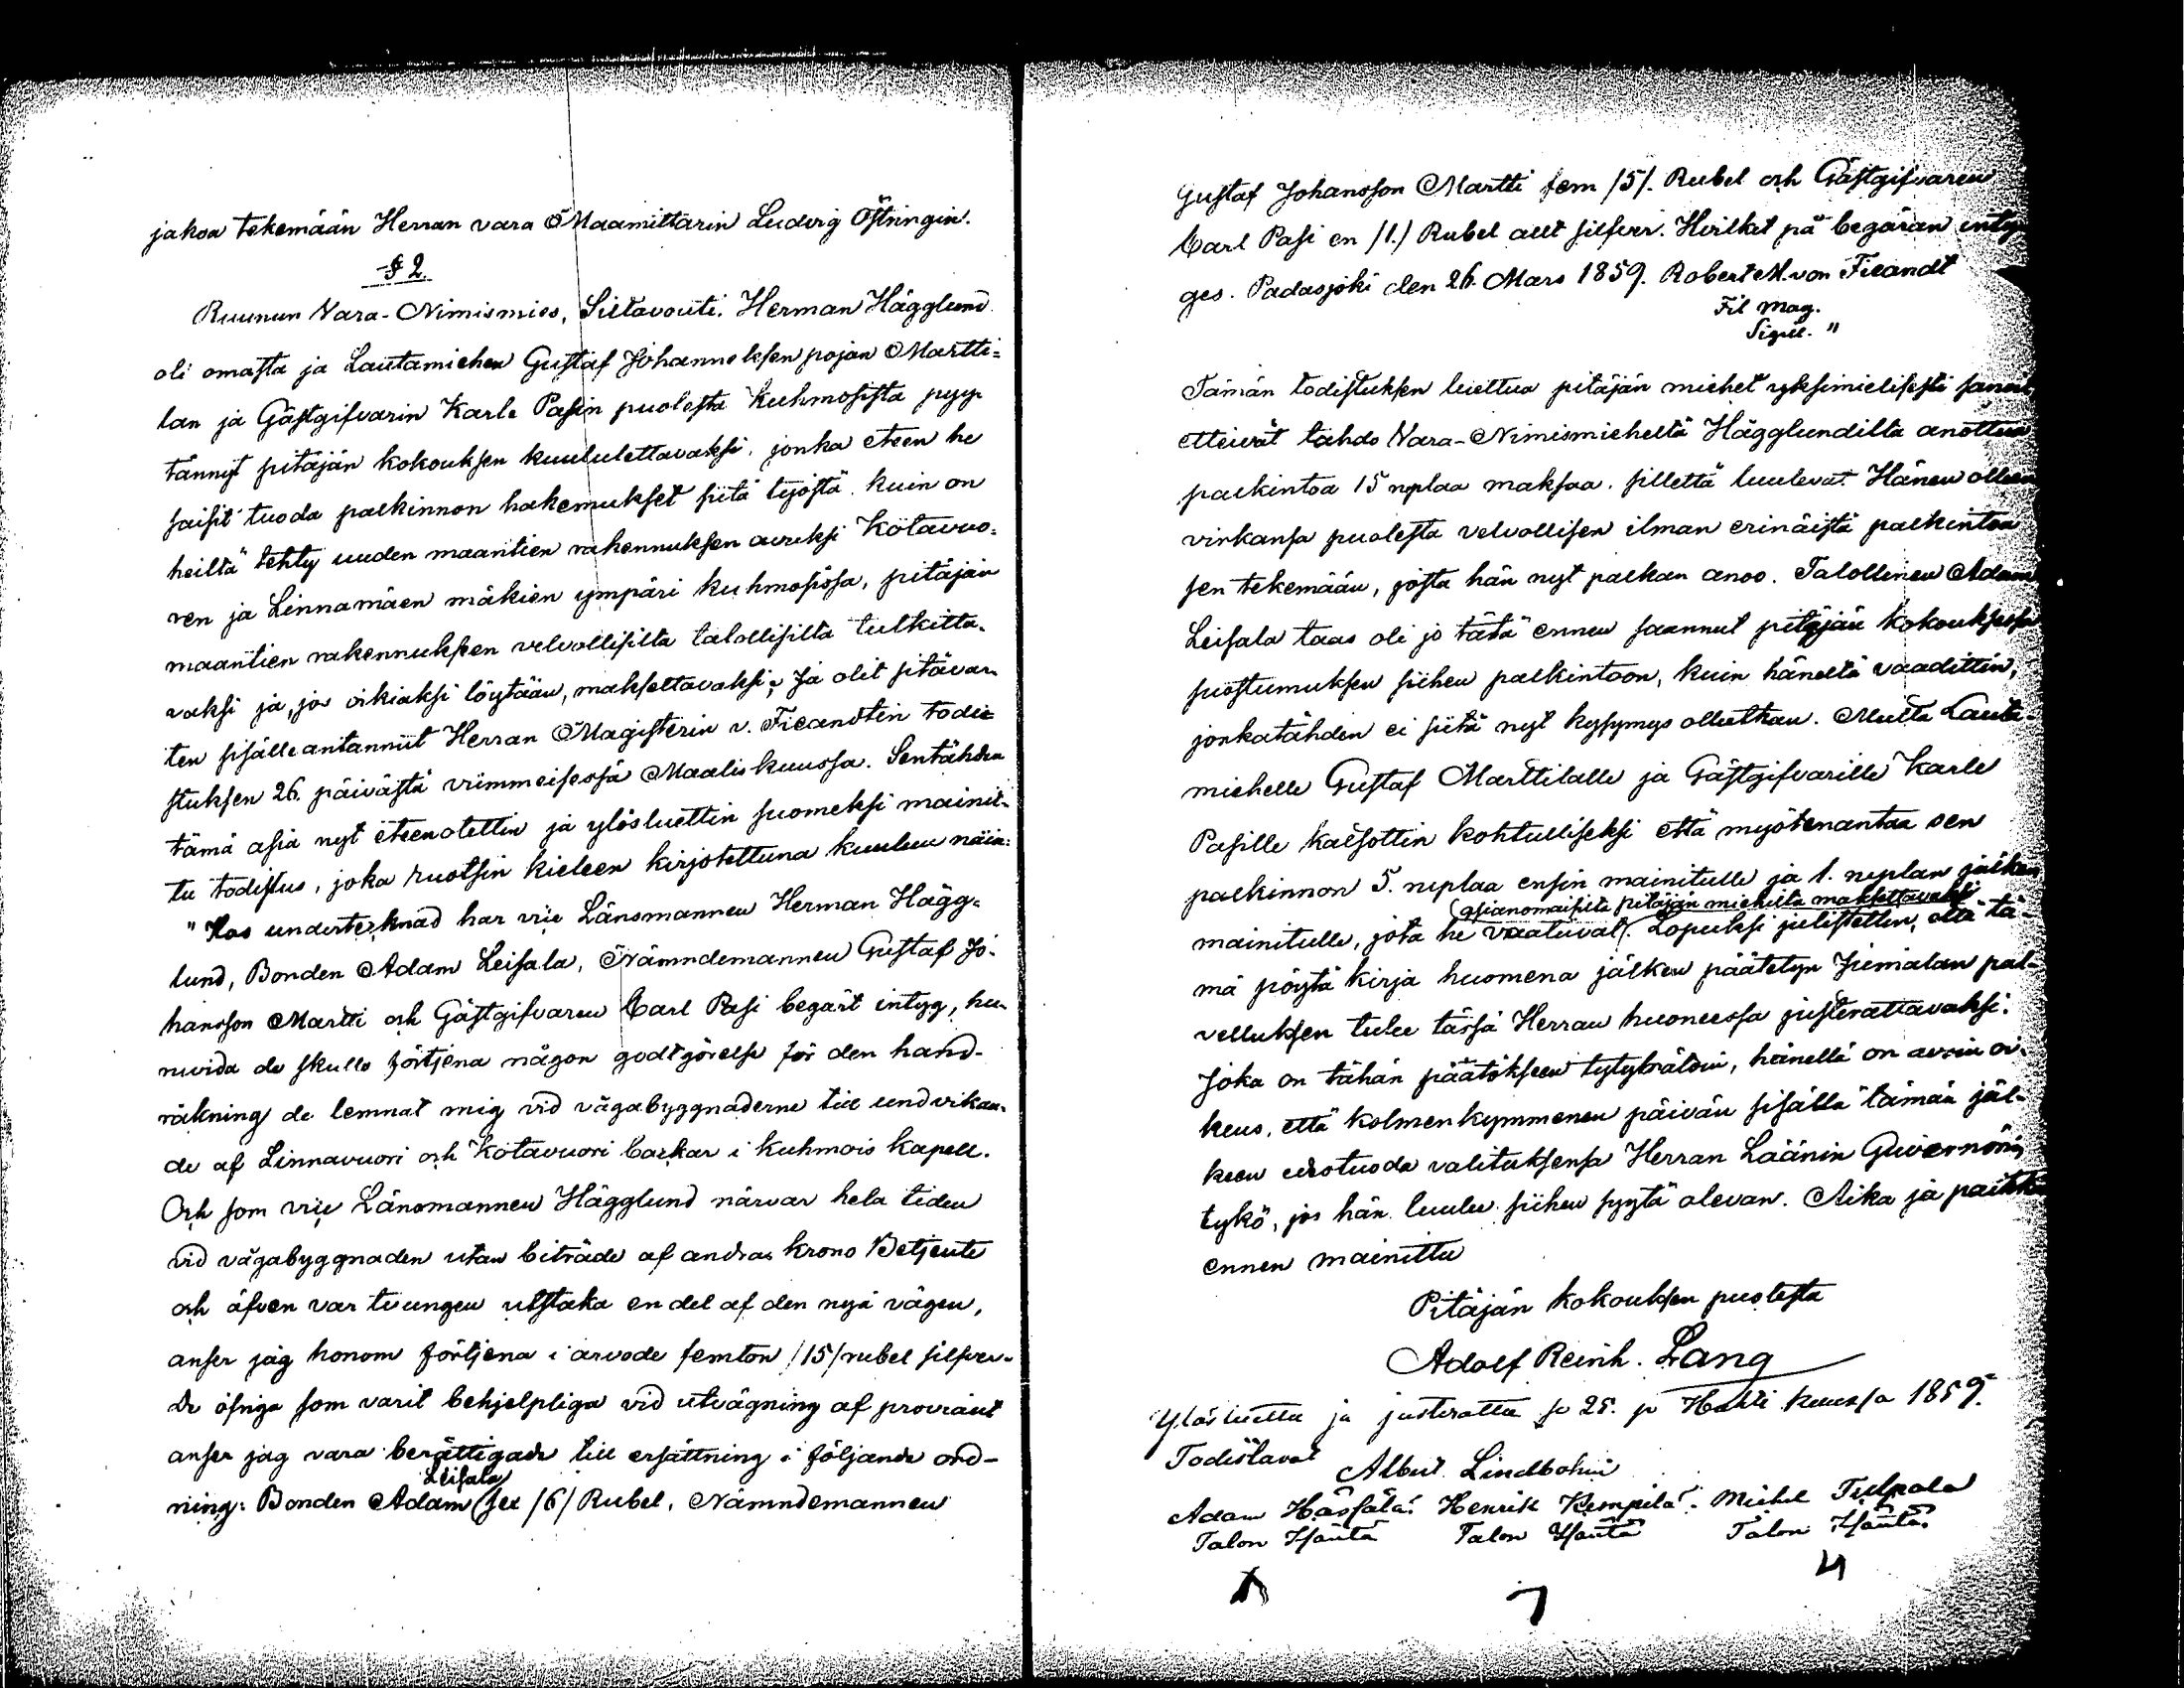 jakoa tekemään Herran vara Maamittarin Ludvig Östringin.
§ 2.
Ruunun Vara-Nimismies, Siltavouti. Herman Hägglund
oli omasta ja Lautamiehen Gustaf Johanneksen pojan Martti-
lan ja Gästgifvarin Karle Pasin puolesta Kuhmosista pyy-
tännyt pitäjän kokouksen kuulutettavaksi, jonka eteen he
saisit tuoda palkinnon hakemukset siitä työstä kuin on
heiltä tehty uuden maantien rakennuksen avuksi Kotavuo-
ren ja Linnamäen mäkien ympäri kuhmosissa, pitäjän
maantien rakennuksen velvollisilta talollisilta tutkitta-
vaksi ja, jos oikiaksi löytään, maksettavaksi; Ja olit sitävar-
ten sisälleantannut Herran Magisterin v. Fieandtin todi-
stuksen 26. päivästä viimmeisessä Maaliskuussa. Sentähden
tämä asia nyt eteenotettin ja ylösluettin suomeksi mainit-
tu todistus, joka ruotsin kieleen kirjotettuna kuuluu näin:
"Hos undertecknad har v. Länsmannen Herman Hägg-
lund, Bonden Adam Leisala, Nämndemannen Gustaf Jo-
hansson Martti och Gästgifvaren Carl Pasi begärt intyg, hu-
ruvida de skulle förtjena någon godtgörelse för den hand-
räkning de lemnat mig vid vägabyggnaderne till undvikan-
de af Linnavuori och Kotavuori backar i Kuhmois Kapell.
Och som v. Länsmannen Hägglund närvar hela tiden
vid vägabyggnaden utan biträde af andra krono Betjente
och äfven var tvungen utstaka en del af den nya vägen,
anser jag honom förtjena i arvode femton /15/ rubel silfver.
De öfriga som varit behjelpliga vid utvägning af proviant
anser jag vara berättigade till ersättning i följande ord-
Leisala
ning: Bonden Adam (sex /6/ Rubel, Nämndemannen
Gustaf Johansson Martti fem /5/. Rubel och Gästgifvaren
Carl Pasi en /1./ Rubel allt silfver. Hvilket på begäran inty-
ges. Padasjoki den 26. Mars 1859. Robert M. von Fieandt
Fil Mag.
Sigill. "
Tämän todistuksen luettua pitäjän miehet yksimielisesti
etteivät tahdo Vara-Nimismieheltä Hägglundilta anottua
palkintoa 15 ruplaa maksaa, sillettä luulevat Hänen olleen
virkansa puolesta velvollisen ilman erinäistä palkintoa
sen tekemään, josta hän nyt palkan anoo. Talollinen Adam
Leisala taas oli jo tätä ennen saannut pitäjän kokouksessa
suostumuksen siihen palkintoon, kuin häneltä vaadittin,
jonkatähden ei siitä nyt kysymys ollutkan. Mutta Lauta-
miehelle Gustaf Marttilalle ja Gästgifvarille Karle
Pasille katsottin kohtulliseksi että myötenantaa sen
palkinnon 5. ruplaa ensin mainitulle ja 1. ruplan jälken
(asianomaisilta pitäjän miehiltä maksettavaksi
mainitulle, jota he vaatuvat/. Lopuksi julistettin, että tä-
mä pöytä kirja huomena jälken päätetyn Jumalan pal-
velluksen tulee tässä Herran huoneessa justerattavaksi.
Joka on tähän päätökseen tytybrätöin, hänellä on avoin oi-
keus, että kolmenkymmenen päivän sisällä tämän jäl-
keen ulostuoda valituksensa Herran Läänin Guvernörin
tykö, jos hän luulee siihen syytä olevan. Aika ja paikka
ennen mainittu
Pitäjän kokouksen puolesta
Adolf Reinh. Lang
Ylösluettu ja justerattu se 25. p Huhti kuussa 1859.
Todistavat
Albert Lindbohm
Adam Hässälä. Henrik Kempilä. Michel Tulpala
Talon Isäntä Talon Isäntä Talon Isäntä